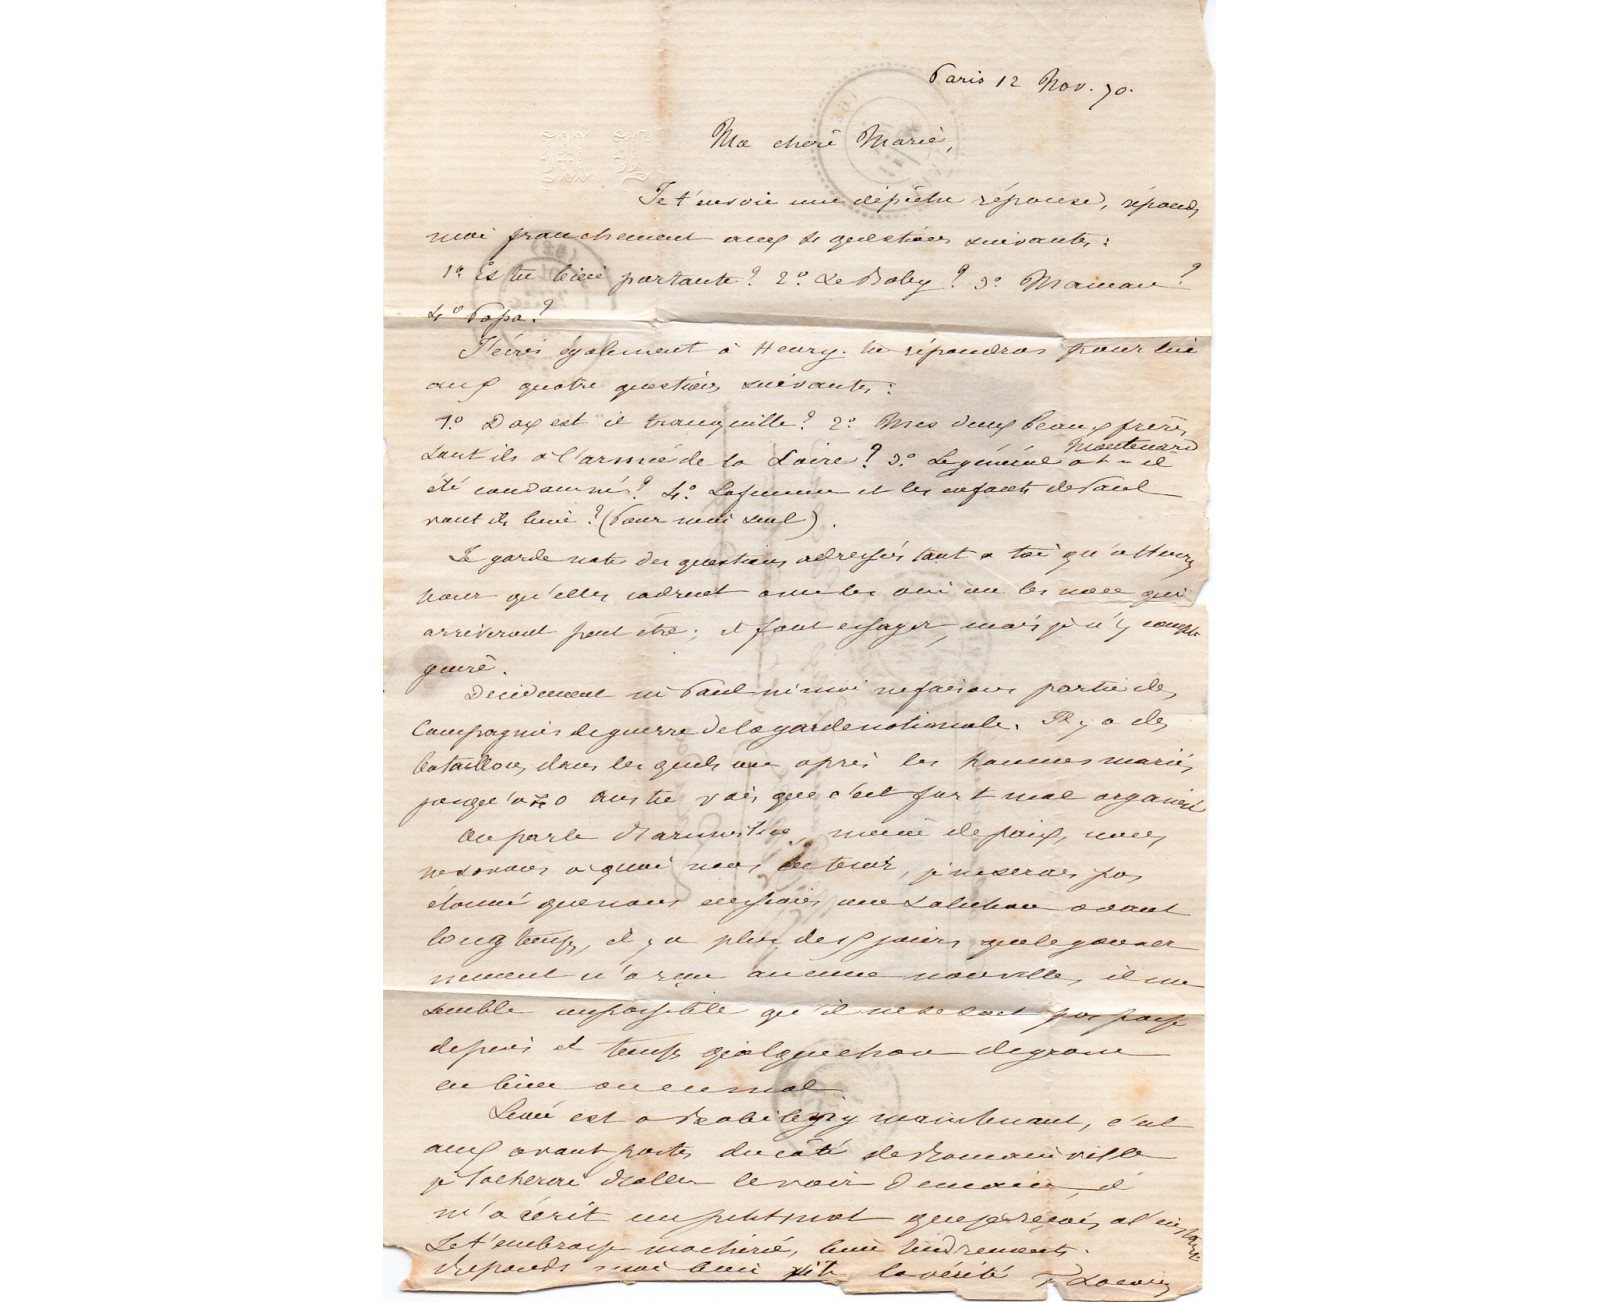 Paris 12 Nov. 70.
Ma chère Marie,
Je t'envoie une dépêche réponse, réponds
moi franchement aux 4 questions suivantes :
1º Es tu bien portante ? 2º Le Baby ? 3º Maman ?
4º Papa ?
J'écris également à Henry. tu répondras pour lui
aux quatre questions suivantes :
1º Dax est il tranquille ? 2º Mes deux beaux frères
sont ils à l'armée de la Loire ? 3º Le général a t-il
été condamné ? 4º La femme et les enfants de Paul
vont ils bien ? (Pour moi seul).
Je garde note des questions adressées tant à toi qu'à Henry
pour qu'elles cadrent avec les oui ou les non qui
arriveront peut être ; il faut essayer, mais je n'y compte
guère.
Décidement ni Paul ni moi ne faisons partie des
Compagnies de guerre de la garde nationale. Il y a des
bataillons dans les quels on a pris les hommes mariés
jusqu'à Ainsi tu vois que c'est fort mal organisé
On parle d'armistice, même de paix, nous
ne savons à quoi nous en tenir, je ne serais pas
étonné que nous eussions une solution avant
longtemps, il y a plus de 8 jours que le gouver
nement n'a reçu aucune nouvelle, il me
semble impossible qu'il ne se soit pas passé
depuis ce temps quelque chose de grave
en bien ou en mal.
est à maintenant, c'est
aux avant postes du côté de Romainville
je tacherai d'aller le voir demain, il
m'a écrit un petit mot que je reçois à l'instant
Je t'embrasse ma chérie, bien tendrement.
Reponds moi bien vite la vérité